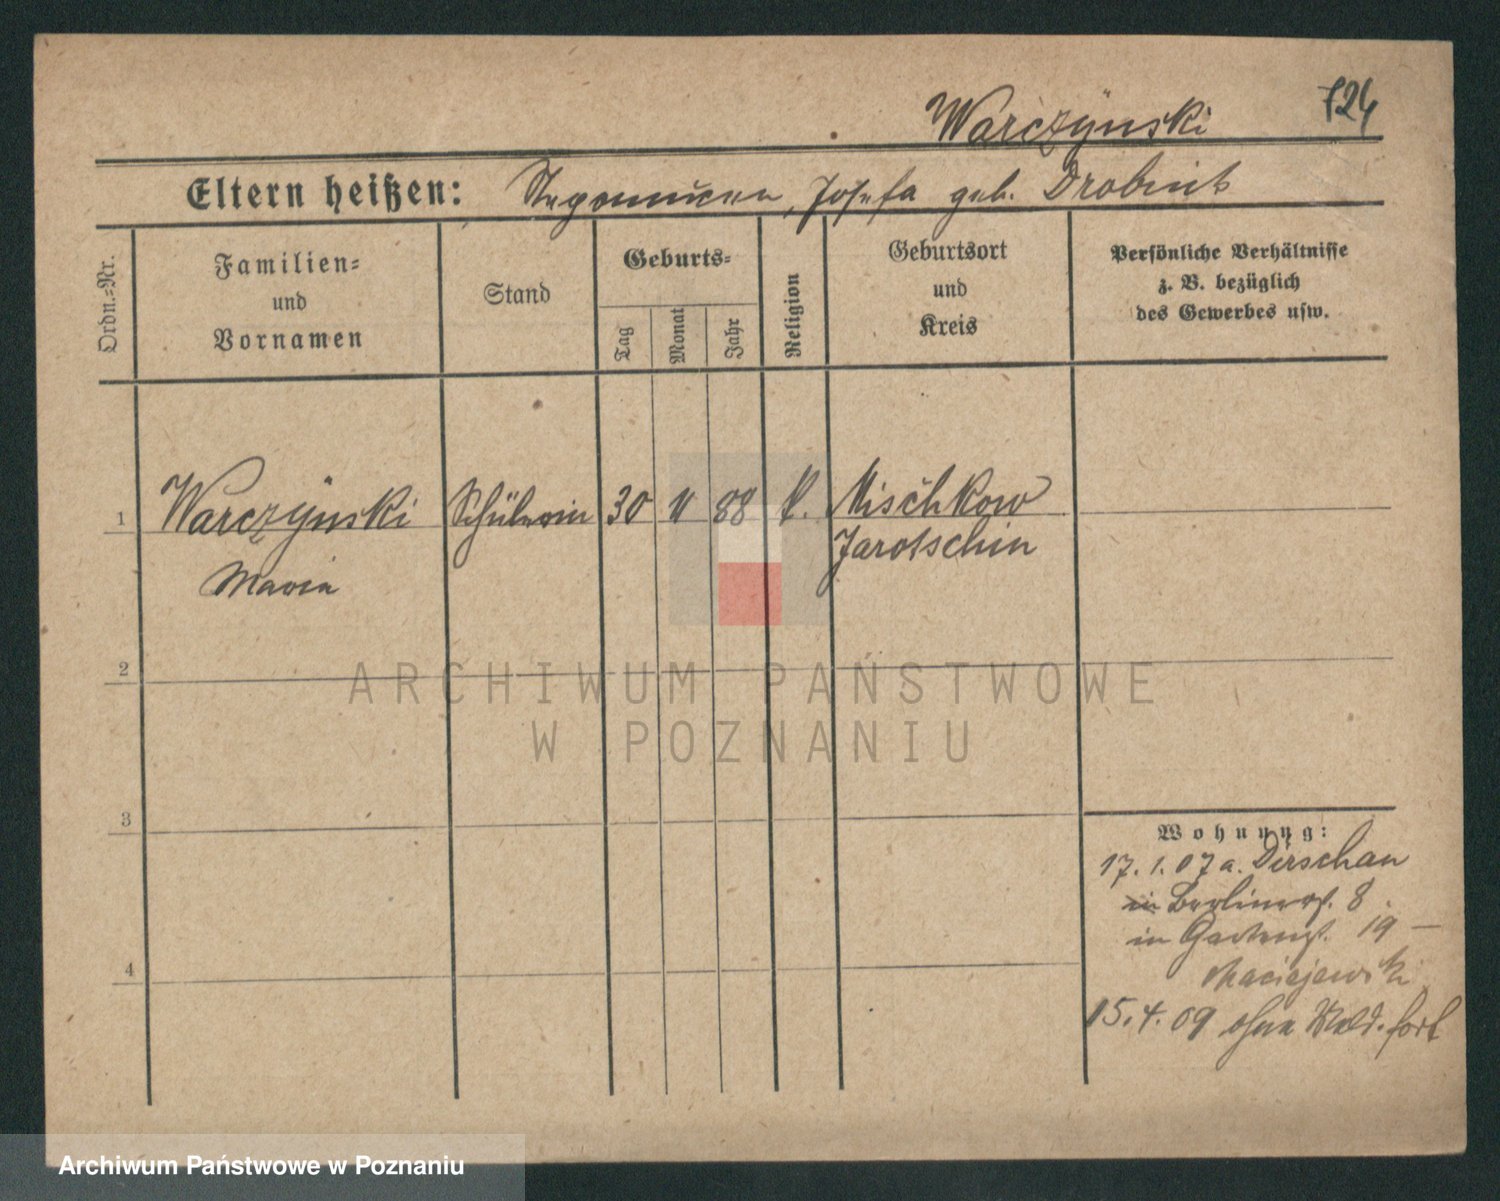 724
Warczynski
Eltern heißen: Josefa geb. Drobnik
Ordn.=Nr.
Familien=
und
Vornamen
Stand
Geburts=
Tag
Monat
Jahr
Religion
Geburtsort
und
Kreis
Persönliche Verhältnisse
z. B. bezüglich
des Gewerbes usw.
1 Warczynski Schülerin 30 11 88 k. Mischkow
Maria Jarotschin
2
3
4
Wohnung:
17.1.07 a. Dirschau
in Berlinerst. 8
in Gartenst. 19 –
Maciejewski
15.4.09 ohne Meld. fort
ARCHIWUM PAŃSTWOWE
W POZNANIU
Archiwum Państwowe w Poznaniu